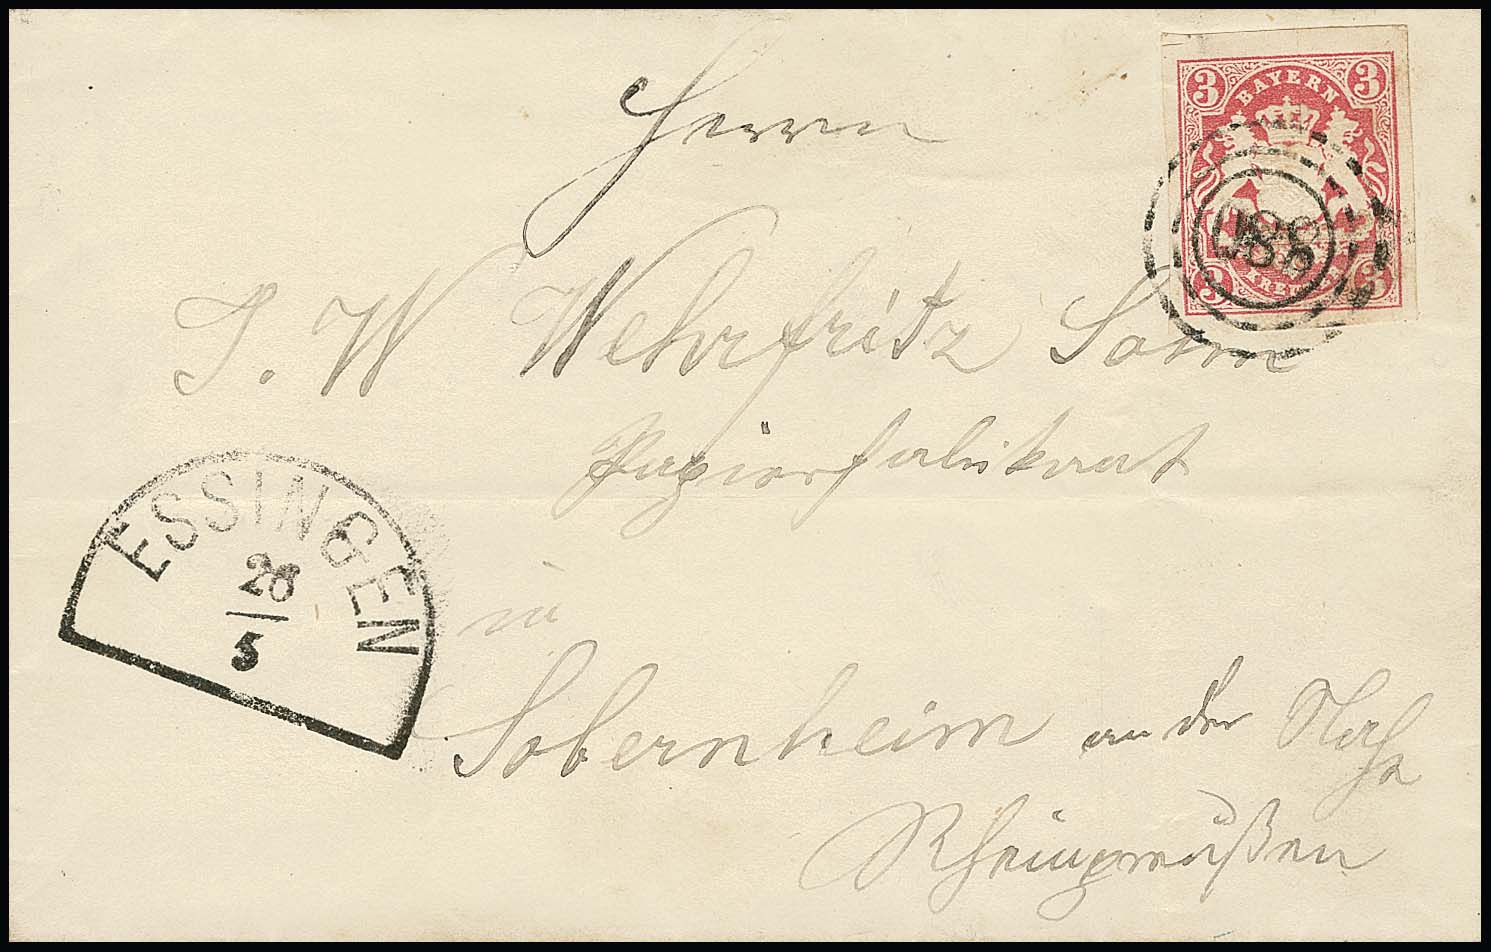 Herrn
3 BAYERN 3
J. W Wehrfritz Sohn
988
3 KREUZER 3
Papierfabrikant
ESSINGEN
28
5
in
Sobernheim an der Nahe
Rheinpreußen